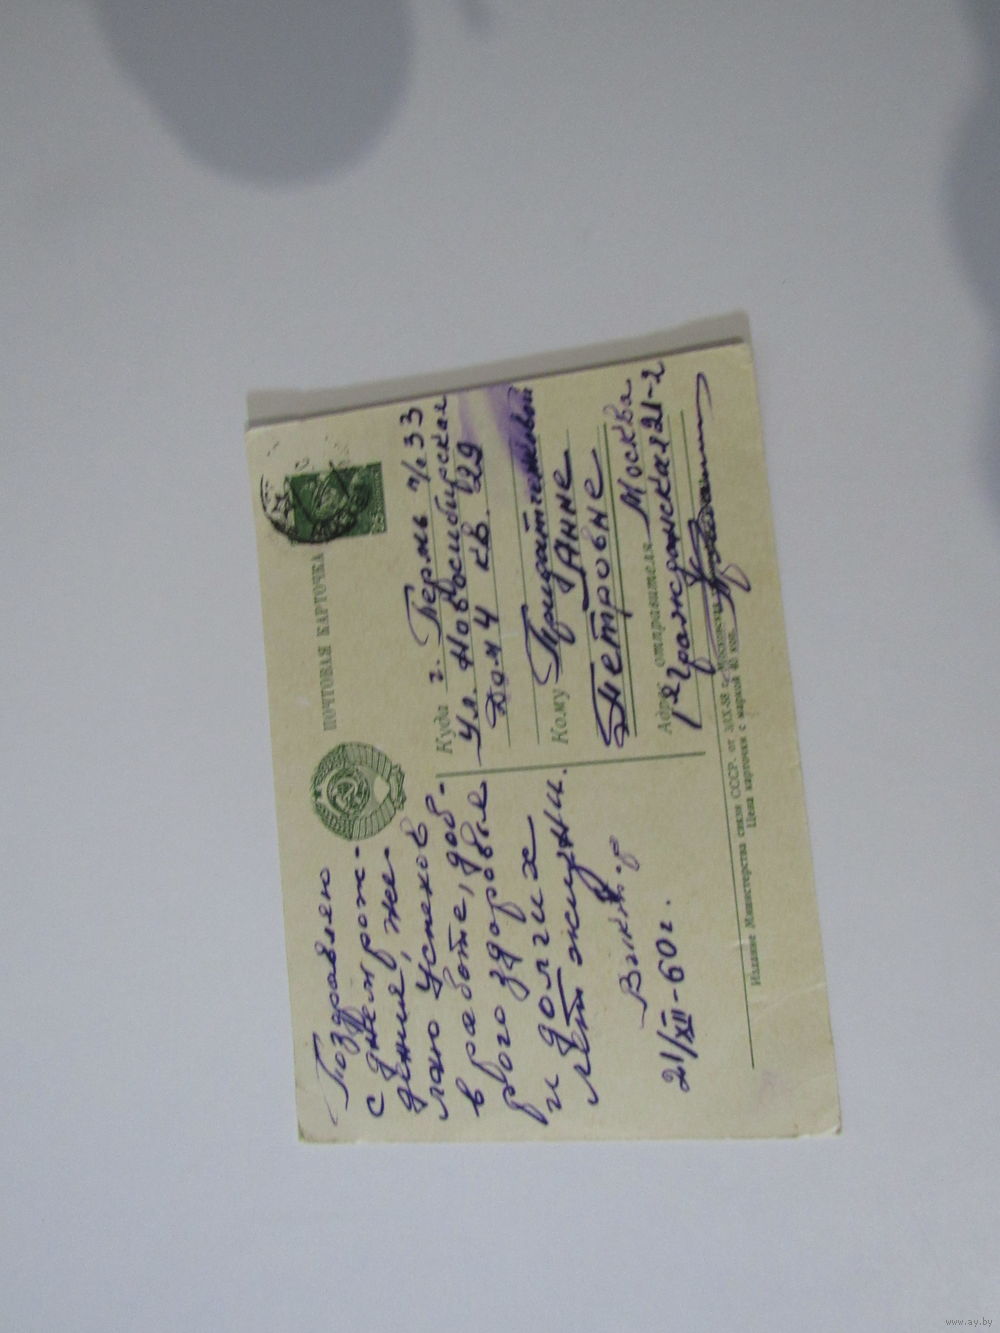 ПОЧТОВАЯ КАРТОЧКА
Поздравляю
с днем рож-
дения, же-
лаю успехов
в работе, доб-
рого здоровья
и долгих
лет жизни.
Виктор
21/XII-60г.
Куда г. Пермь п/о 33
Ул. Новосибирская
Дом 4 кв. 129
Кому
Анне
Петровне
Адрес отправителя Москва
Гражданская 21-2
Издание Министерства связи СССР. от
Цена карточки с маркой 40 коп.
www.ay.by